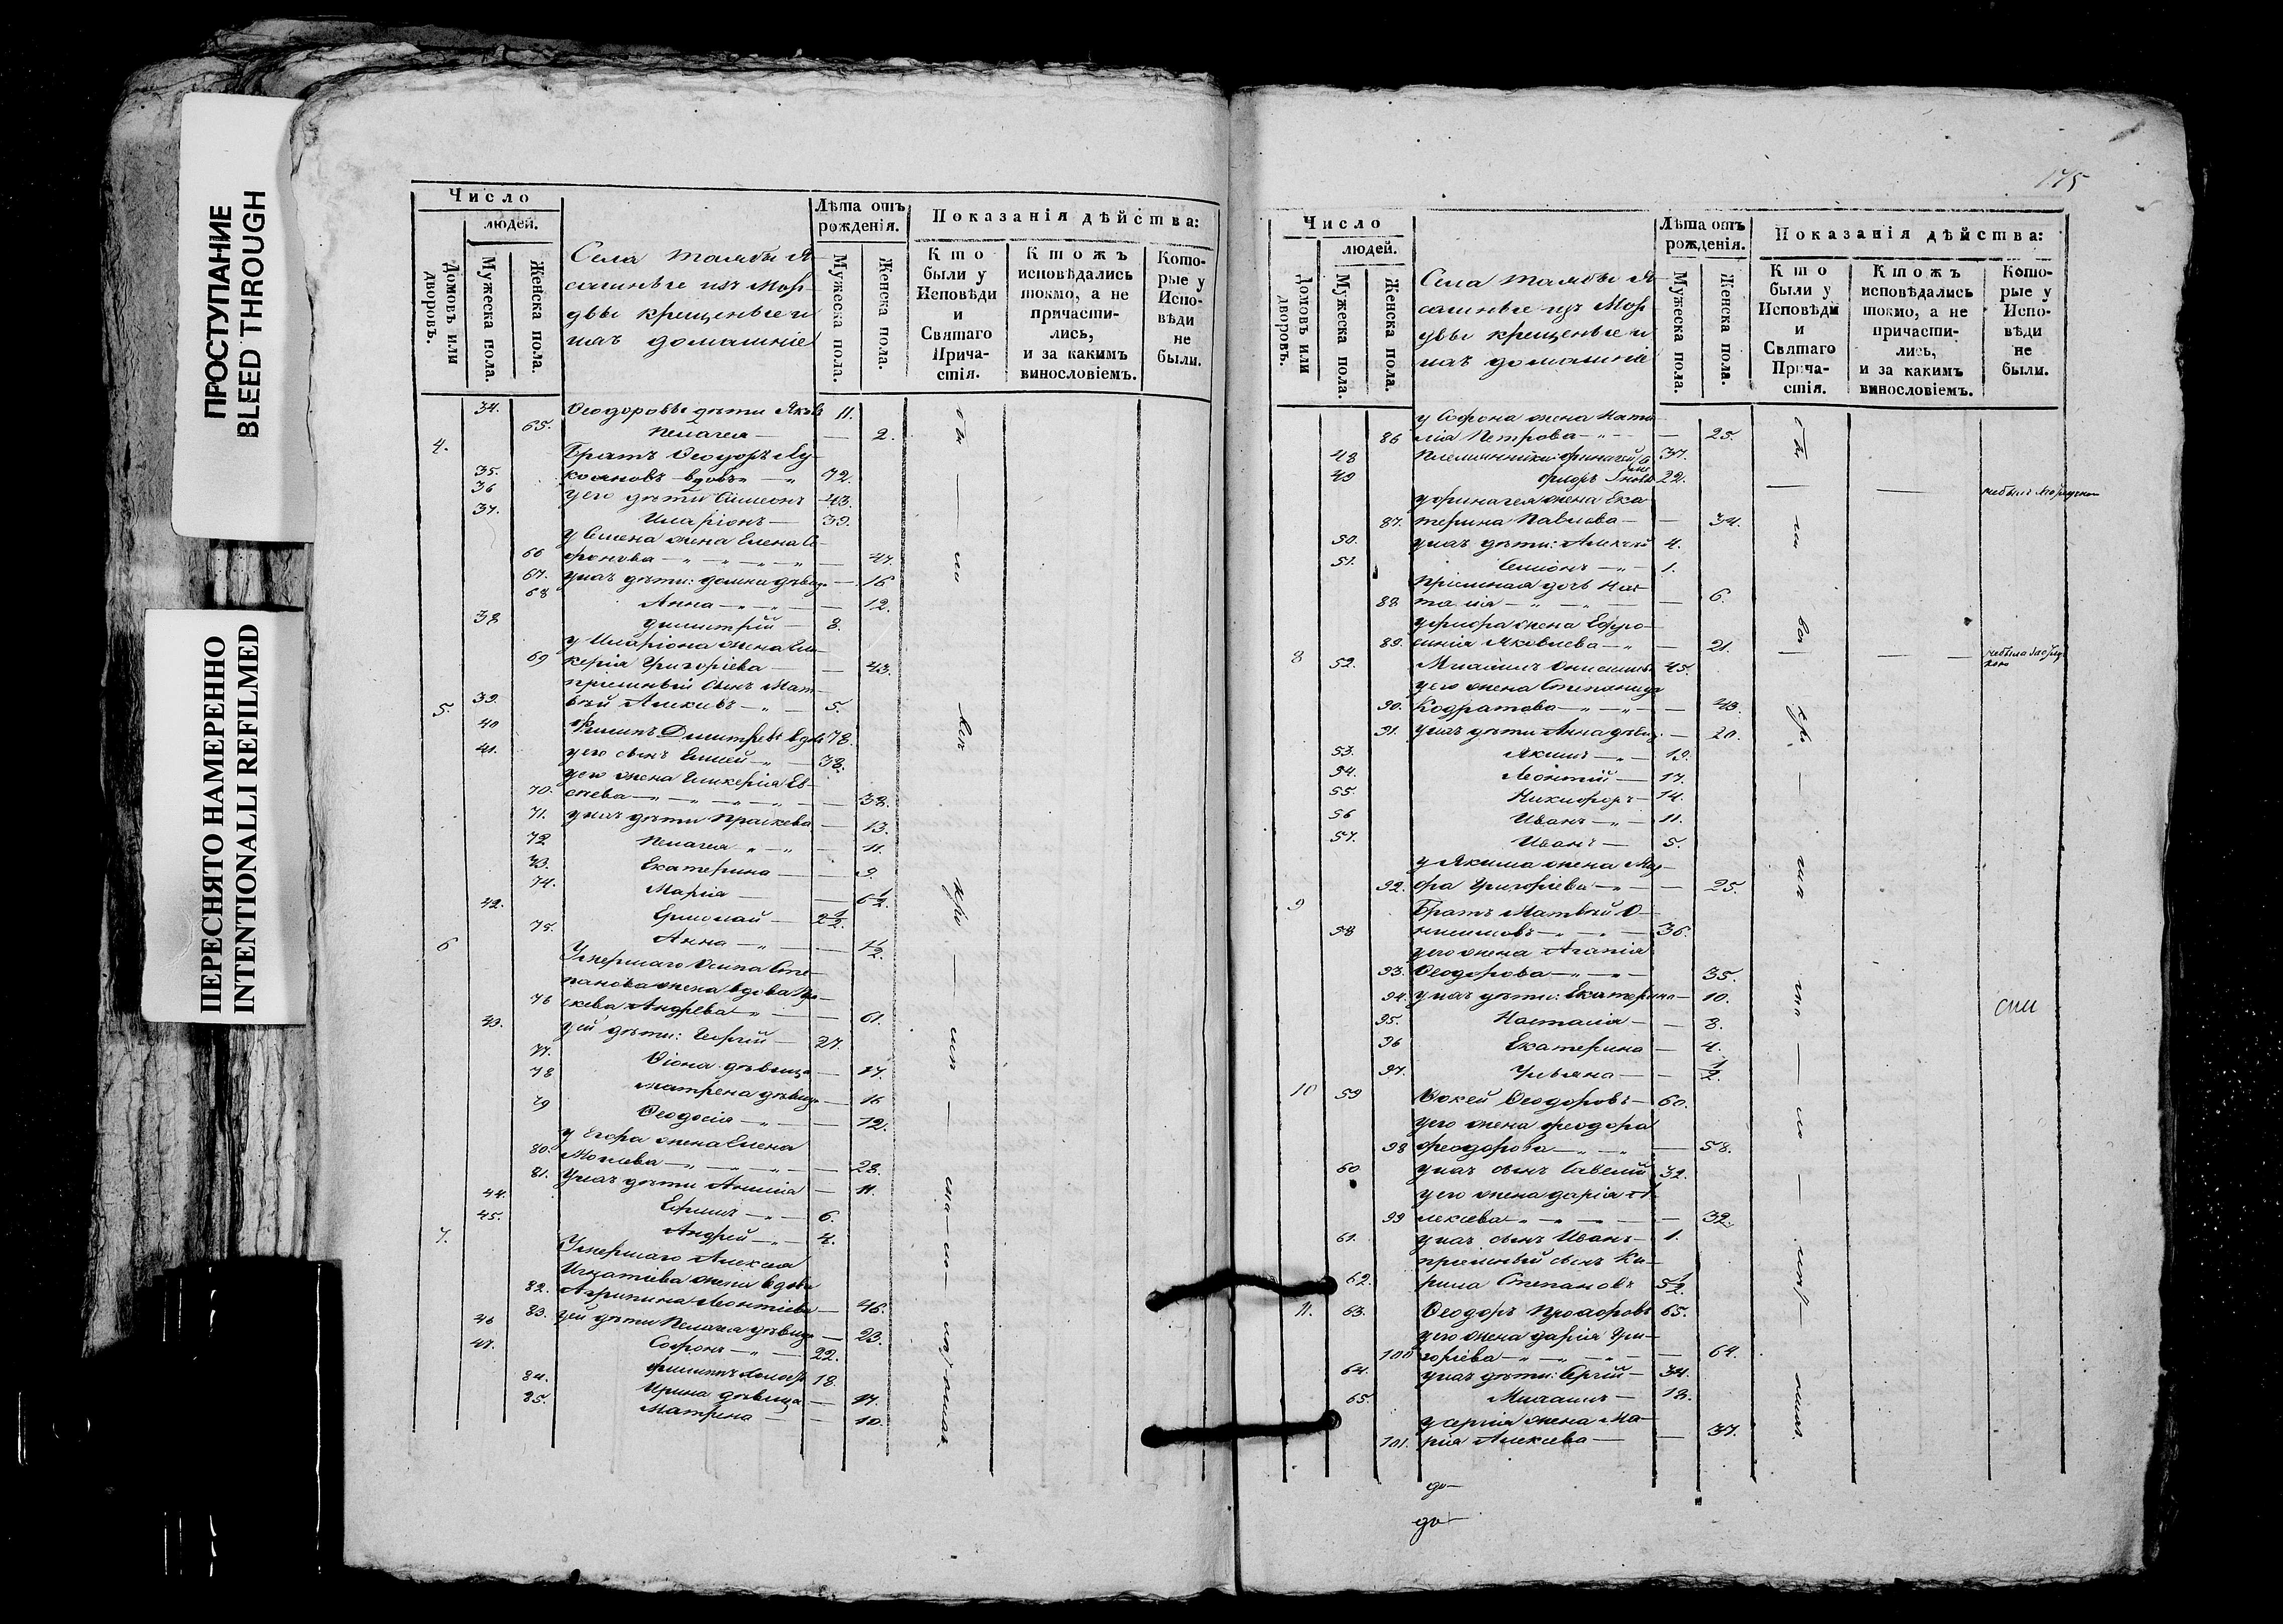 ПРОСТУПАНИЕ
BLEED THROUGH
ПЕРЕСНЯТО НАМЕРЕННО
INTENTIONALLI REFILMED
Число
людей.
Домовъ или дворовъ.
Мужеска пола.
Женска пола.
Села
крещеные и
ихъ домашніе
Лѣта отъ рожденія.
Мужеска пола.
Женска пола.
Показанія дѣйства:
Кто были у Исповѣди и Святаго Причастія.
Ктожъ исповѣдались токмо, а не причастились, и за какимъ винословіемъ.
Которые у Исповѣди не были.
34. Ѳеодоровы дѣти 11.
65. Пелагея — — 2.
4. Братъ Ѳеодоръ Лу-
35. кояновъ вдовъ — 72.
36 у его дѣти Симеонъ 43.
37. Иларіонъ — 39.
у Семена жена Елена Со-
66 фонова — 47.
67. у нихъ дѣти: Домна дѣвица — 16
68 Анна — — 12.
38 Димитрій — 8.
у Иларіона жена Гли-
69 керія Григоріева — — 43.
пріемный сынъ Мат-
39. вѣй — 5.
5. 40 Филипъ Димитревъ вдовъ 78.
41. у его сынъ Елисей — 38.
у его жена Гликерія Ев-
70. сеева — — 38.
71. у нихъ дѣти Праскева — 13.
72 Пелагея — 11.
73. Екатерина — — 9.
74. Марія — — 6 1/2.
42. Ермолай — 2 1/2.
75. Анна — — 1/2
6 Умершаго Осипа Сте-
панова жена вдова Пра-
76 скева Андреева — — 61.
43. у ей дѣти: Георгій — 27.
77. дѣвица — 17.
78 Матрена дѣвица — 16
79 Ѳеодосія — — 12.
у Егора жена Елена
80. — 28.
81. У нихъ дѣти Анисія — 11.
44. Ефимъ — 6.
45. Андрей — 4.
7. Умершаго Алексея
Игнатіева жена вдова
82. Агрипина Леонтіева — 46.
83. у ей дѣти Пелагея дѣвица — 23.
46 Софонъ — 22.
47. Филиппъ 18.
84. Ирина дѣвица — 17.
85. Матрена — — 10.
175
Число
людей.
Домовъ или дворовъ.
Мужеска пола.
Женска пола.
Села
крещеные и
ихъ домашніе
Лѣта отъ рожденія.
Мужеска пола.
Женска пола.
Показанія дѣйства:
Кто были у Исповѣди и Святаго Причастія.
Ктожъ исповѣдались токмо, а не причастились, и за какимъ винословіемъ.
Которые у Исповѣди не были.
у Софона жена Ната-
86 лія Петрова — — 25.
48 Племянники 37.
49 22.
жена Ека-
87. терина Павлова — — 34.
50. у нихъ дѣти: Алексей 4.
51. Симіонъ — 1.
Пріемная дочь На-
88 талія — — 6.
жена Ефро-
89. синія Яковлева — — 21.
8 52. Михаилъ Онисимовъ 45.
у его жена Степанида
90. Кодратова — — 43.
91. у нихъ дѣти Анна дѣвица — 20.
53. Якимъ — 19.
54. Леонтій — 17.
55. Никифоръ — 14.
56 Иванъ — 11.
57. Иванъ — 5.
у Якима жена Мар-
92. фа Григоріева — — 25.
9 Братъ Матвѣй О-
58 нисимовъ — 36.
у его жена Агапія
93. Ѳеодорова — 35.
94. у нихъ дѣти: Екатерина — 10.
95. Насталія — — 8.
96 Екатерина — 4.
97. Ульяна — — 1/2.
10 59 Ѳокей Ѳеодоровъ — 60.
у его жена Феодора
98 Феодорова — — 58.
60 у нихъ сынъ Савелій 32.
у его жена Дарія А-
99 лексеева — — 32.
61. у нихъ сынъ Иванъ — 1.
пріемный сынъ Ки-
62. рила Степановъ 5 1/2
11. 63. Ѳеодоръ Прохоровъ 65.
у его жена Дарія Гри-
100 горіева — — 64.
64. у нихъ дѣти: Сергій — 34.
65. Михаилъ — 18.
у Сергія жена Ма-
101. рія Алексеева — — 37.